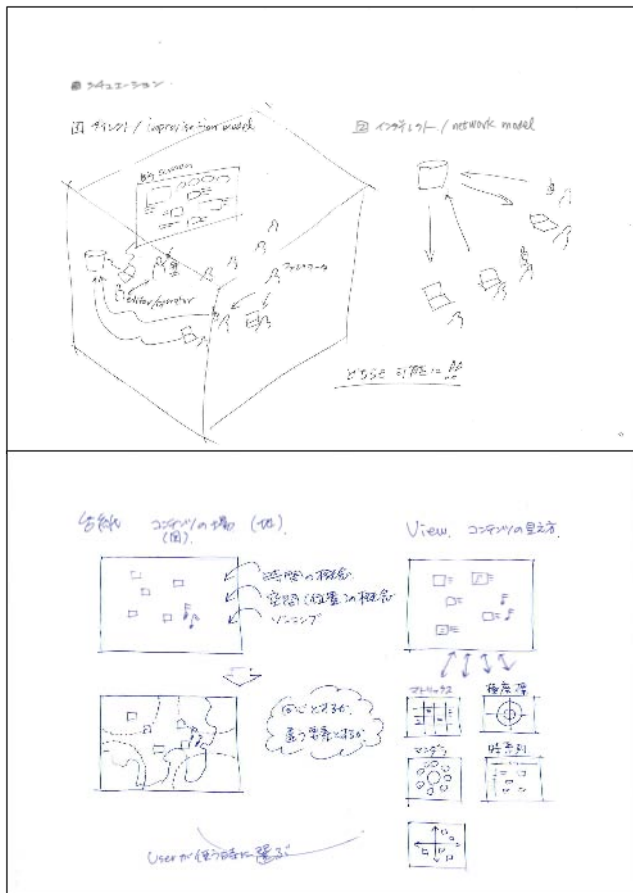 シチュエーション
ダイレクト / improvisation model
Big screen
editor/operator
ファシリテータ
インダイレクト / network model
どちらも可能に
台紙 コンテンツの場 (地)
(図)
時間の概念
空間(位置)の概念
ゾーニング
同じとするか
違う要素とするか
Userが使う時に選ぶ
View. コンテンツの見え方
マトリックス
極座標
マンダラ
時系列